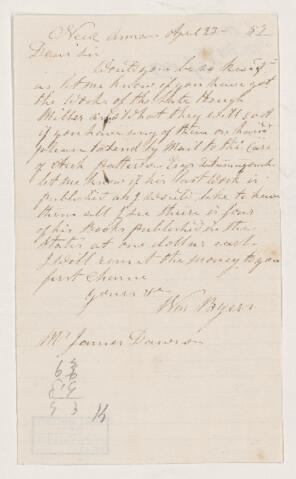 New Annan April 22 - 57
Dear Sir
Would you be so kind
as let me know if you have got
the Works of the late Hough
Miller and What they will cost
if you have any of them on hand
please to send by Mail to the Care
of Arch Patterson Esqr
let me know if his last Work is
published as I would like to have
them all I see there is four
of his Books published in the
States at one dollar each
I will remit the money to you
first chance
Yours &c
Wm Byers
Mr James Dawson